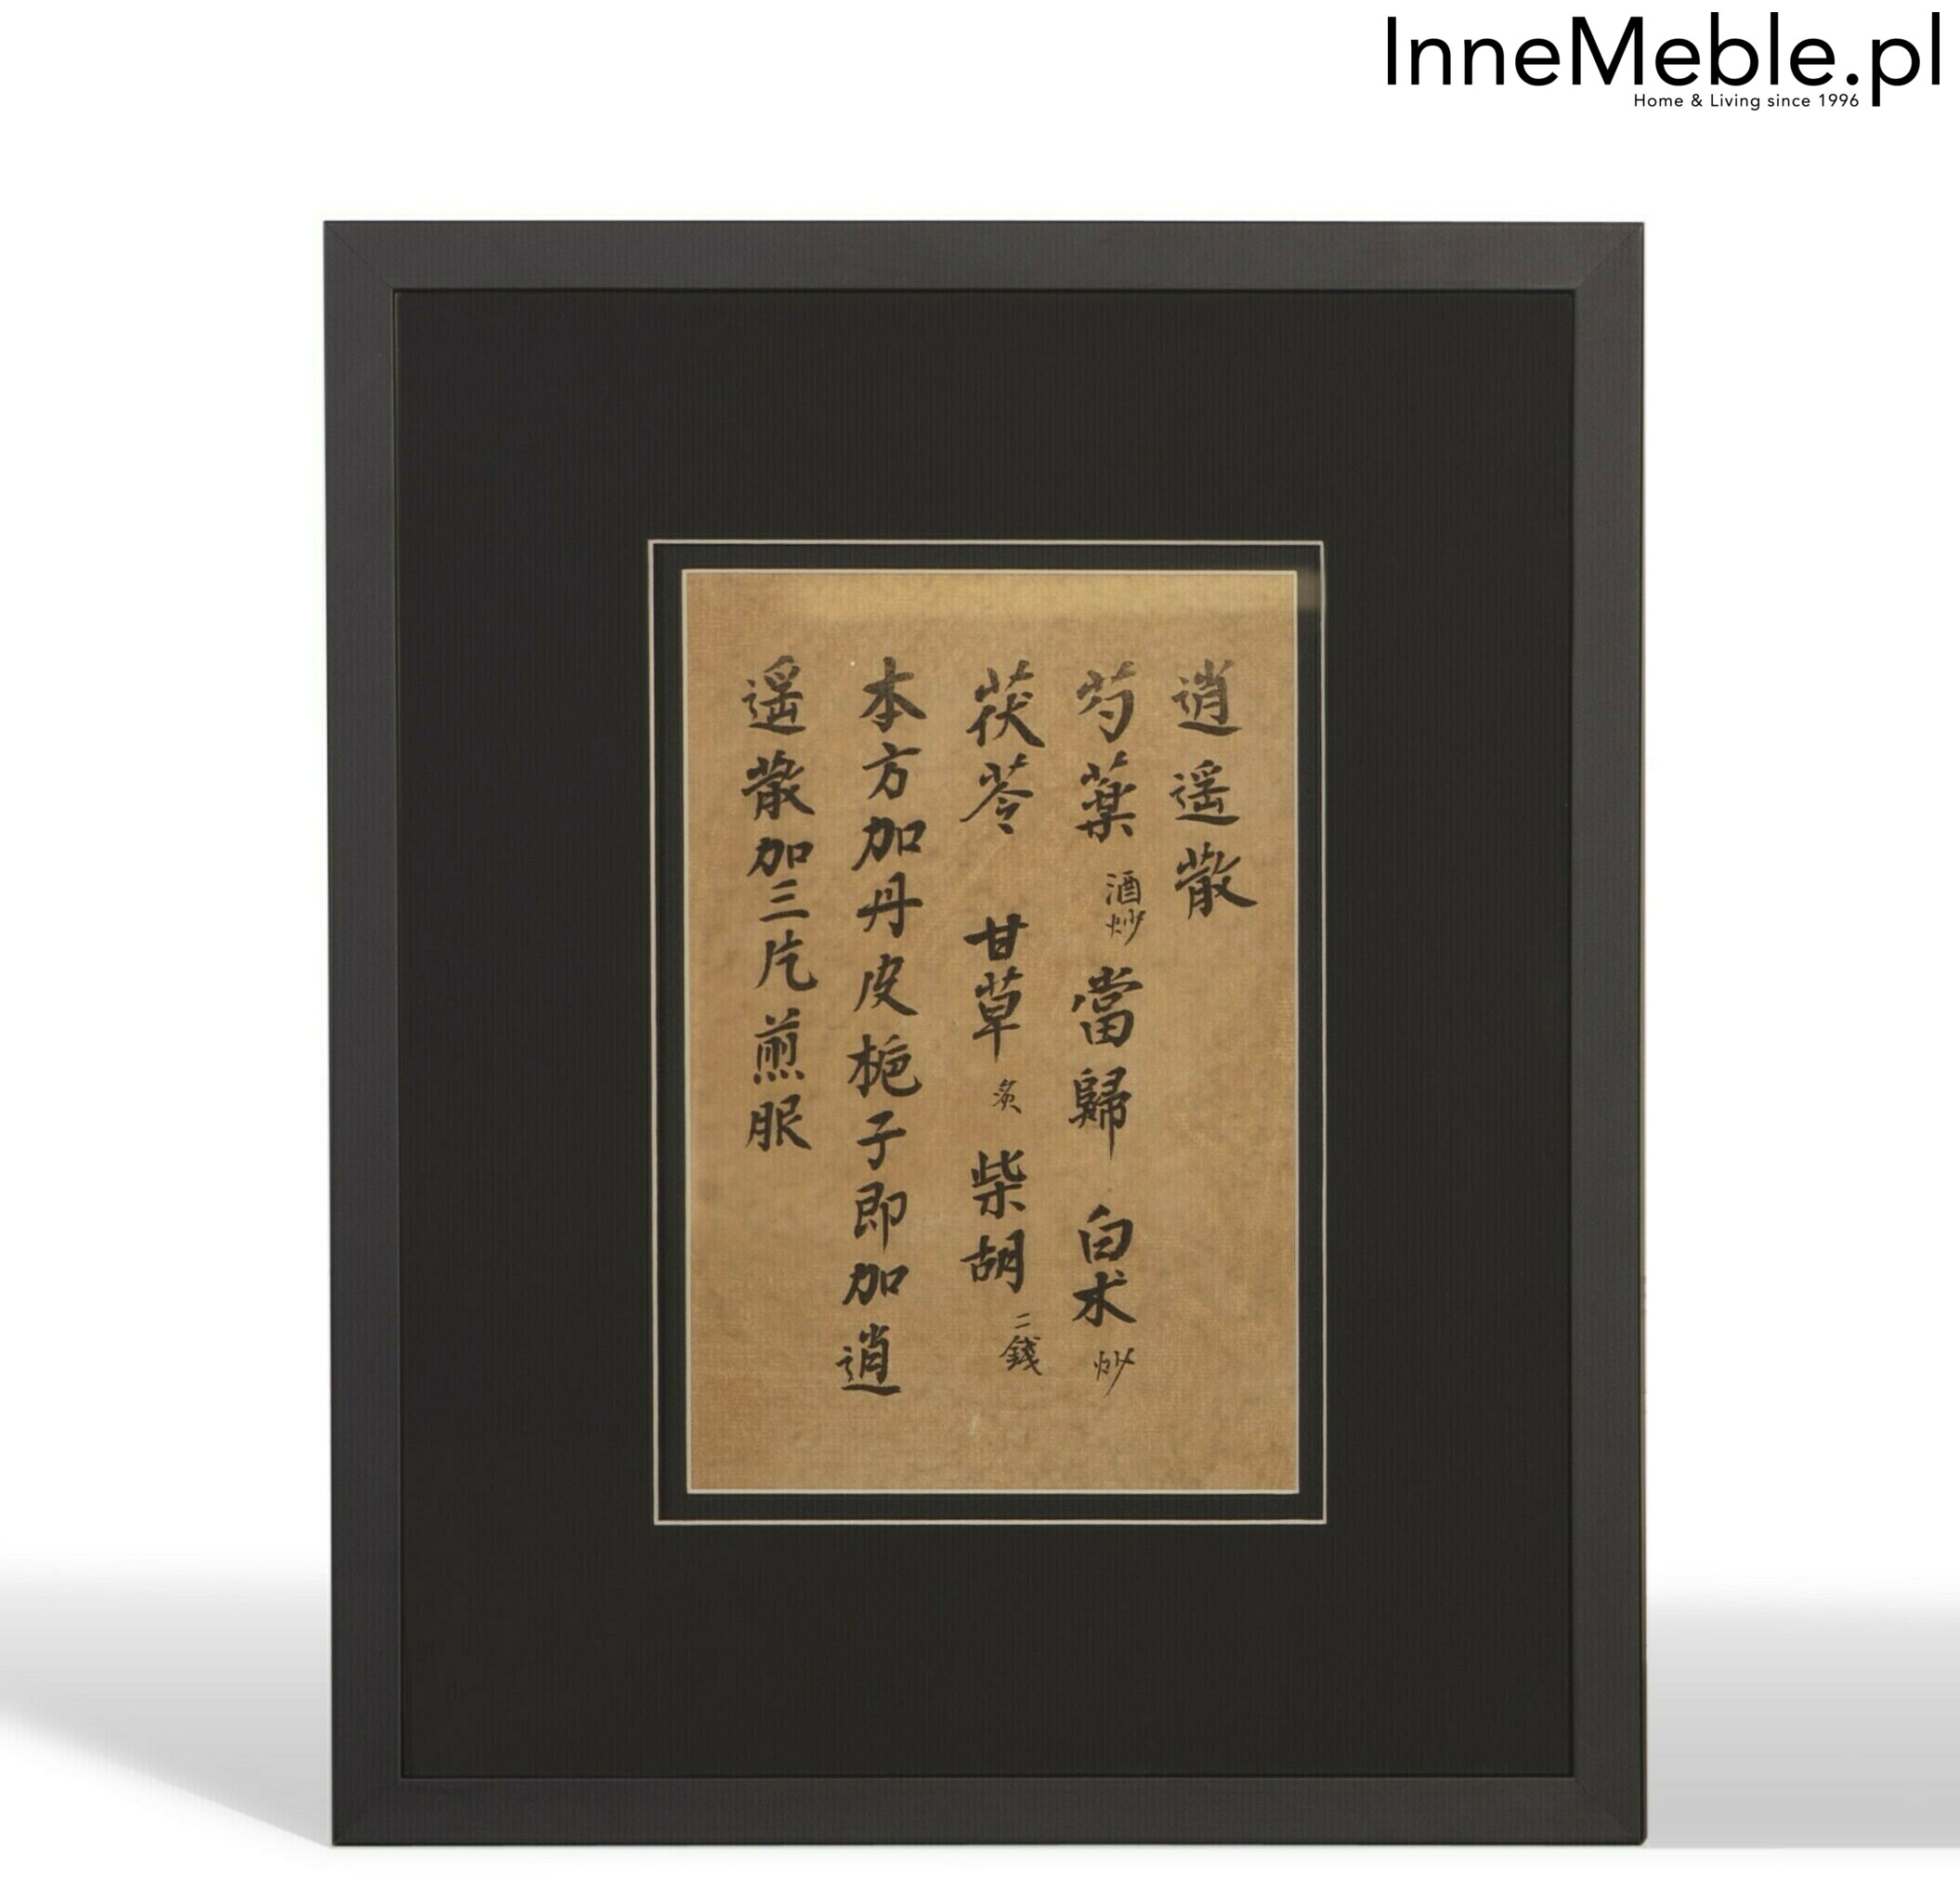 InneMeble.pl
Home & Living since 1996
逍遥散
芍藥 酒炒 當歸 白术 炒
茯苓 甘草 炙 柴胡 二錢
本方加丹皮梔子即加逍
遥散加三片煎服